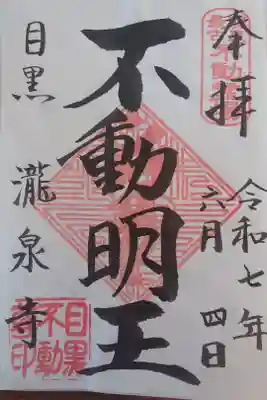 奉拝
令和七年
六月四日
不動明王
目黒瀧泉寺
目黒
不動
印